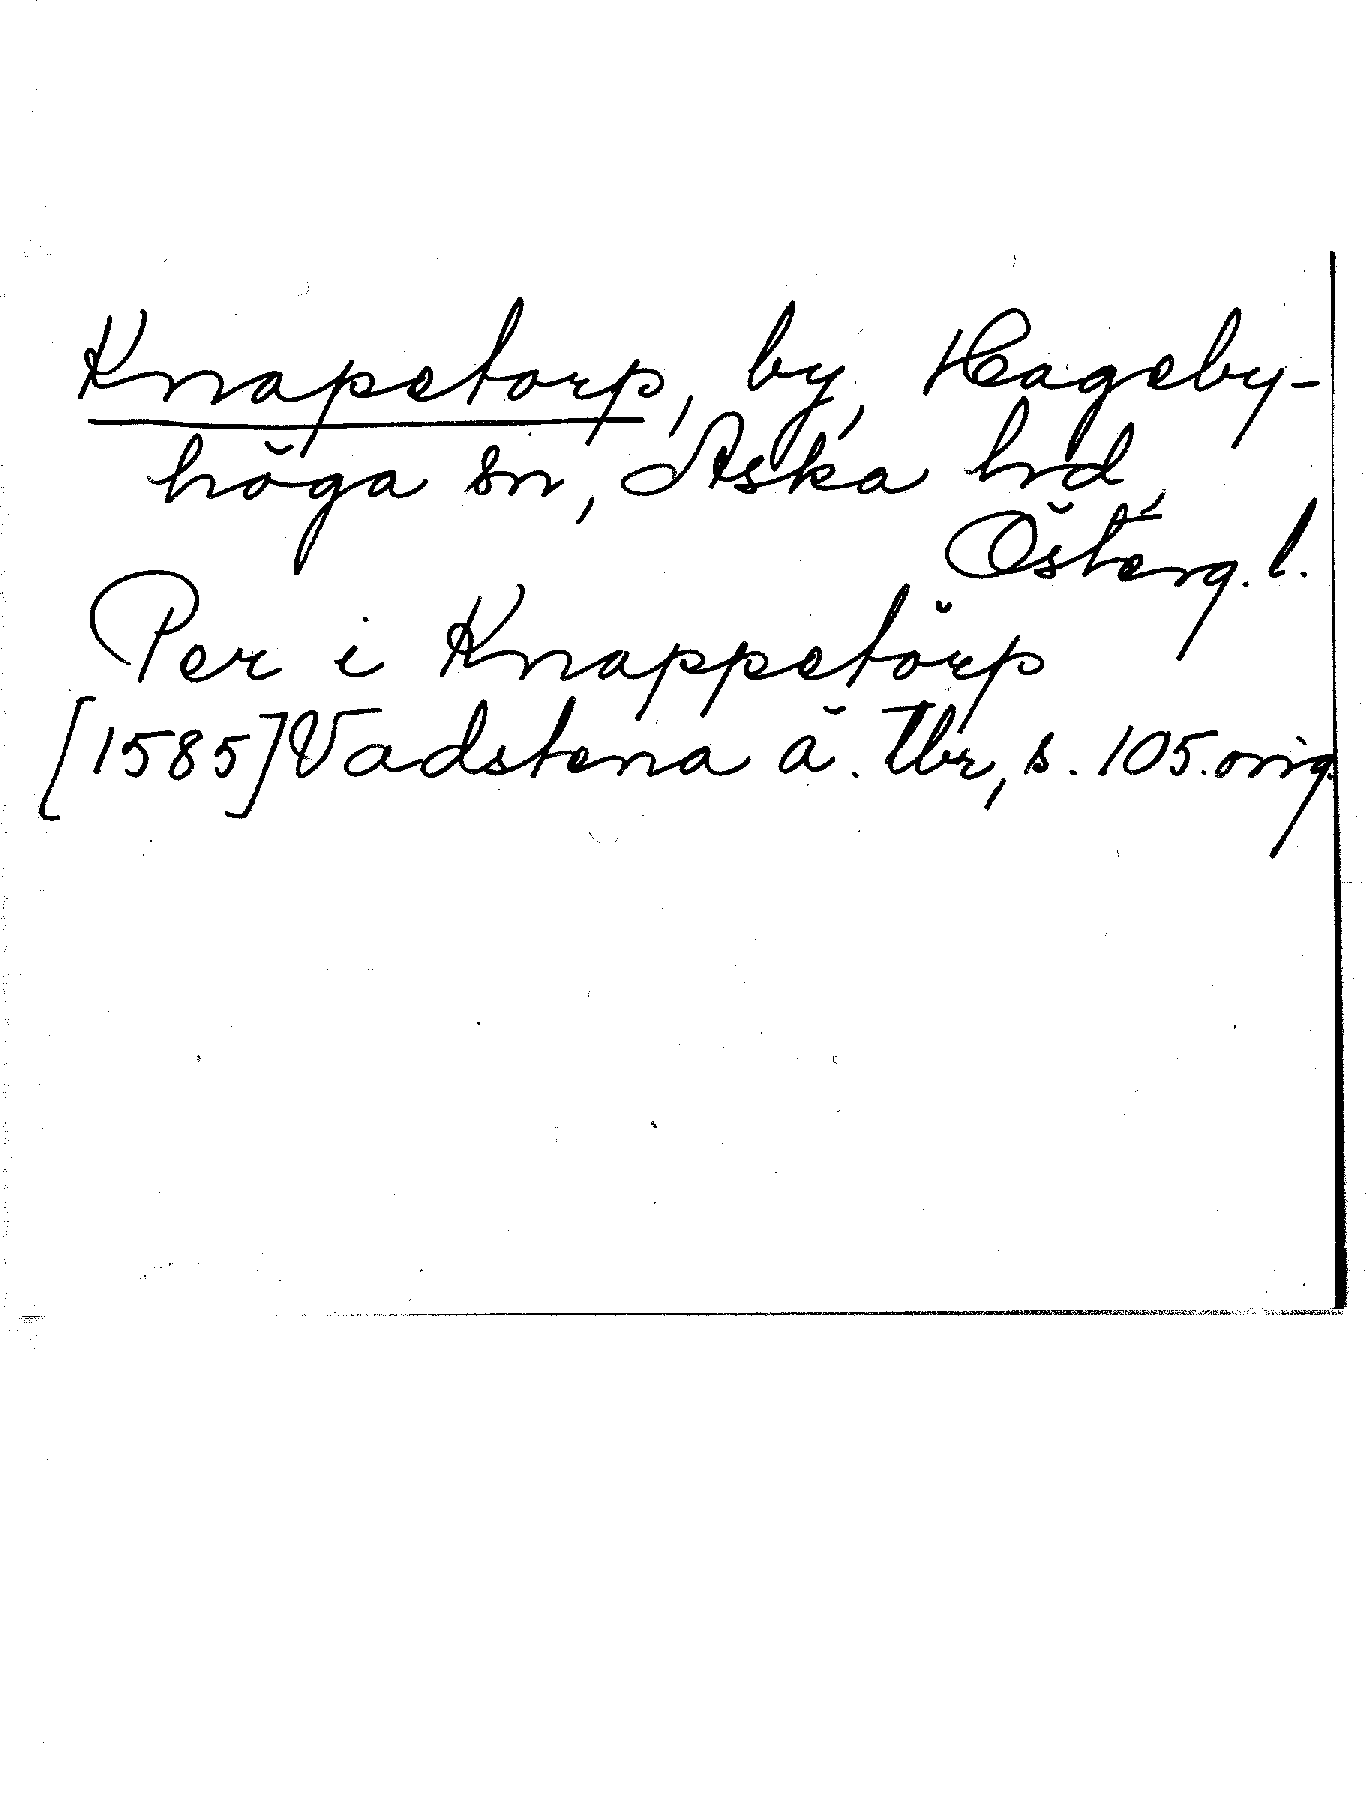 Knapetorp, by, Hageby-
höga sn, Aska hd,
Österg. l.
Per i Knappetörp
[1585] Vadstena ä. Tbr, s. 105. orig.